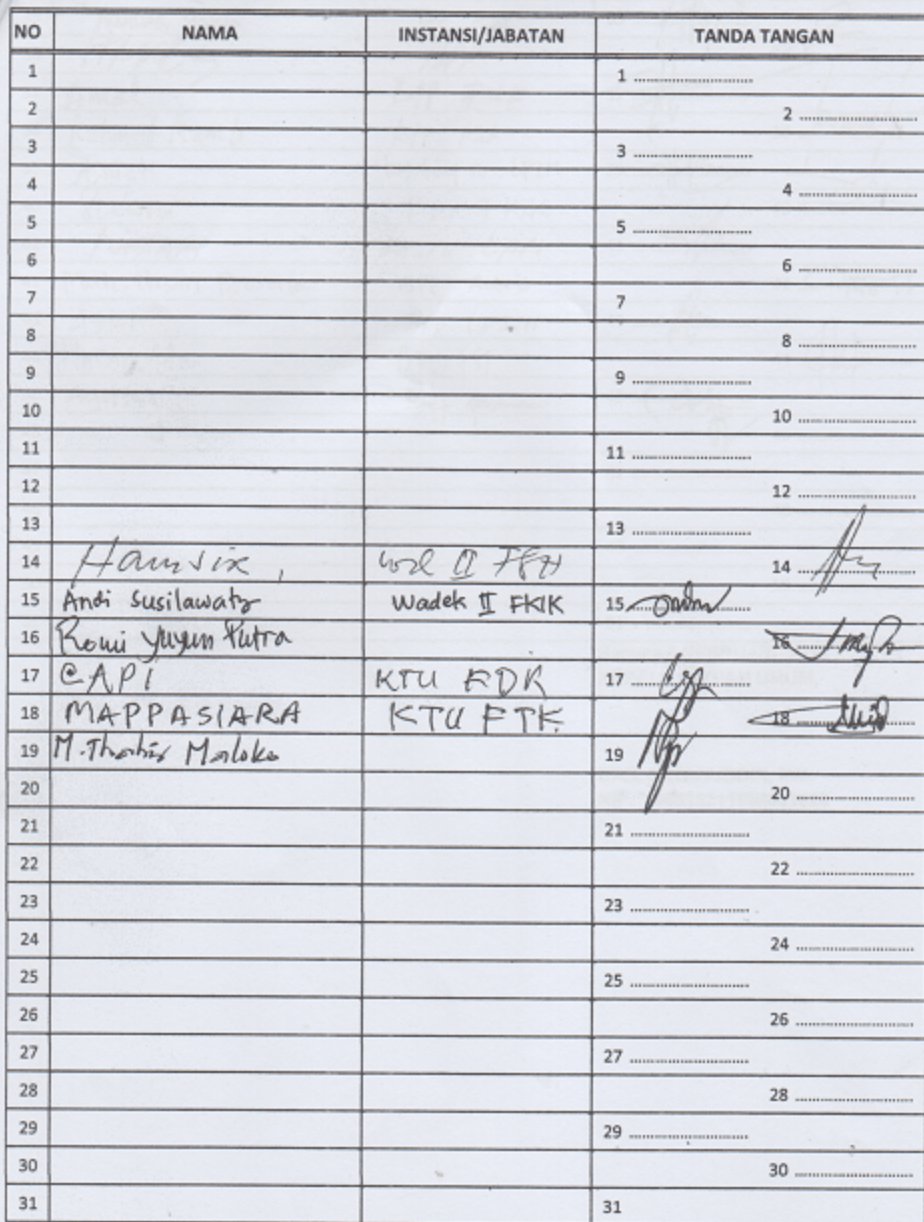 NO NAMA INSTANSI/JABATAN TANDA TANGAN
1 1 ....................
2 2 ....................
3 3 ....................
4 4 ....................
5 5 ....................
6 6 ....................
7 7
8 8 ....................
9 9 ....................
10 10 ....................
11 11 ....................
12 12 ....................
13 13 ....................
14 II 14 ....................
15 Andi Susilawaty Wadek II FKIK 15 ....................
16 Romi Yuyun Putra 16 ....................
17 CAPI KTU FDK 17 ....................
18 MAPPASIARA KTU FTK 18 ....................
19 M. Thahir Maloko 19
20 20 ....................
21 21 ....................
22 22 ....................
23 23 ....................
24 24 ....................
25 25 ....................
26 26 ....................
27 27 ....................
28 28 ....................
29 29 ....................
30 30 ....................
31 31